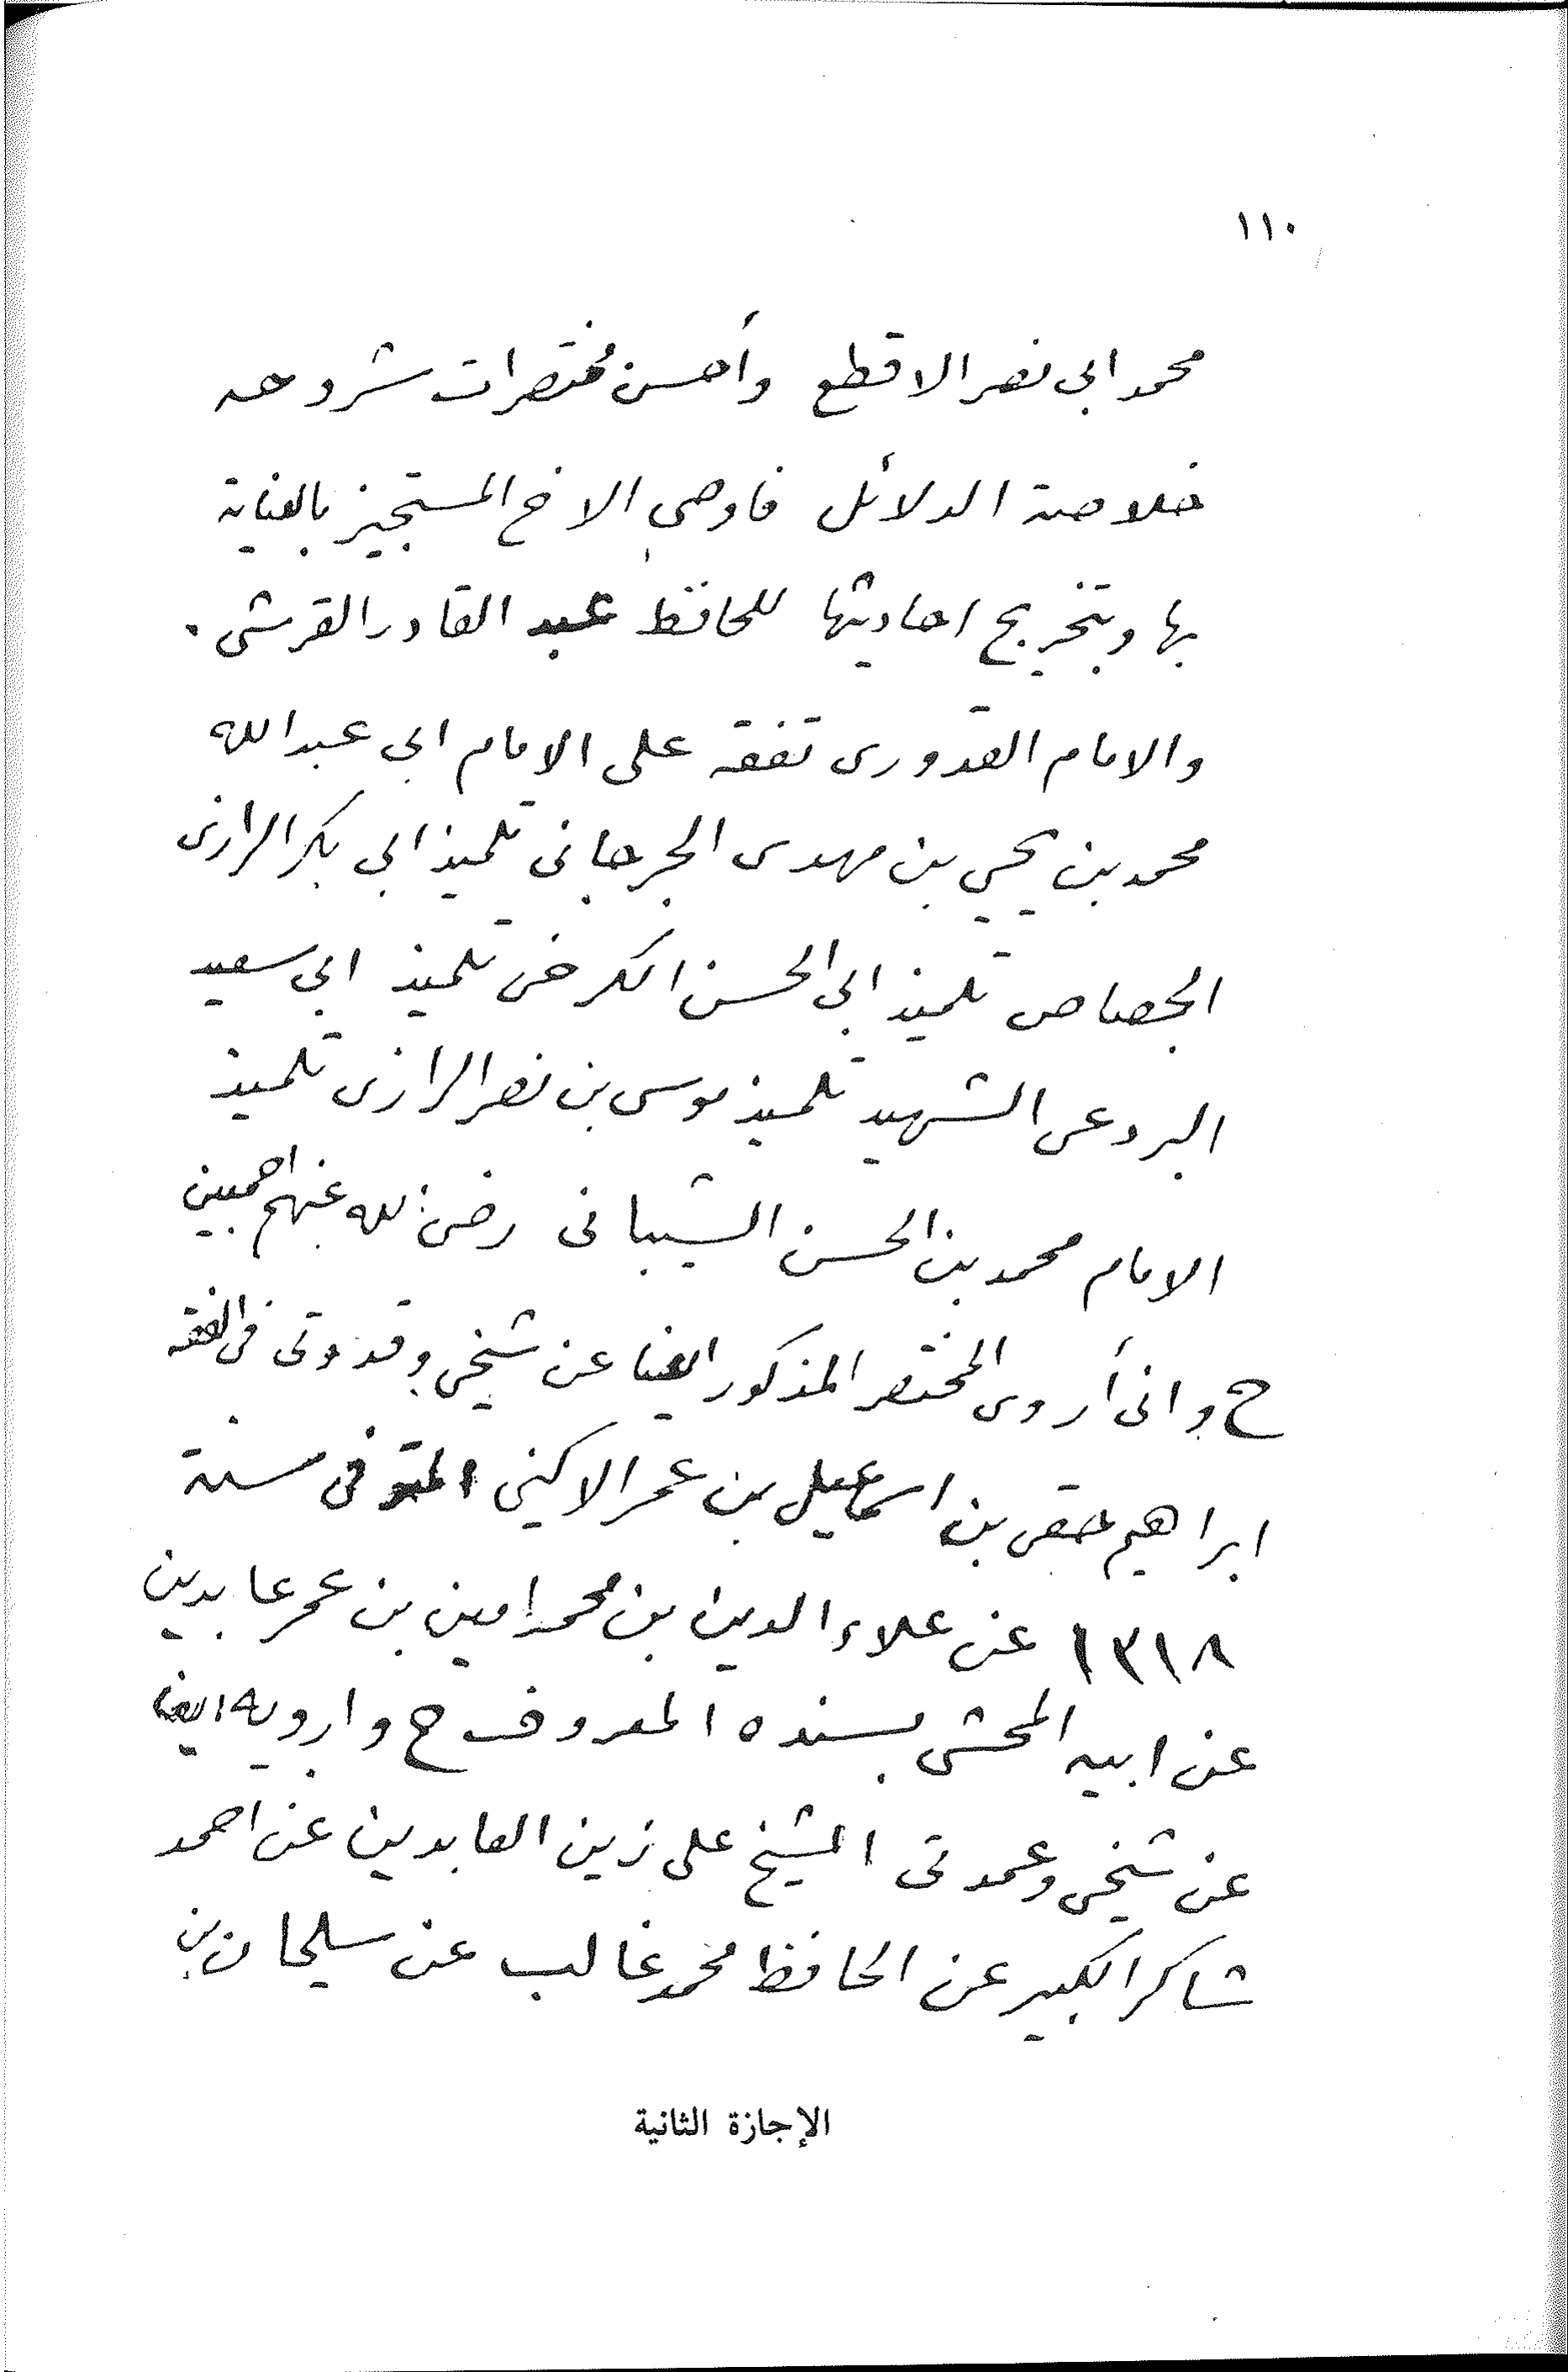 ١١٠
محمد ابى نصر الاقطع وأحسن مختصرات شروحه
خلاصة الدلائل فاوصى الاخ المستجيز بالعناية
بها وبتخريج احاديثها للحافظ عبد القادر القرشى .
والامام القدورى تفقه على الامام ابى عبد الله
محمد بن يحيى بن مهدى الجرجانى تلميذ ابى بكر الرازى
الجصاص تلميذ ابى الحسن الكرخى تلميذ ابى سعيد
البردعى الشهيد تلميذ موسى بن نصر الرازى تلميذ
الامام محمد بن الحسن الشيبانى رضى الله عنهم اجمعين
ح وانى أروى المختصر المذكور ايضا عن شيخى وقدوتى فى الفقه
ابراهيم حقى بن اسماعيل بن عمر الاكينى المتوفى سنة
١٣١٨ عن علاء الدين بن محمد امين بن عمر عابدين
عن ابيه المحشى بسنده المعروف ح وارويه ايضا
عن شيخى وعمدتى الشيخ على زين العابدين عن احمد
شاكر الكبير عن الحافظ محمد غالب عن سليمان بن
الإجازة الثانية